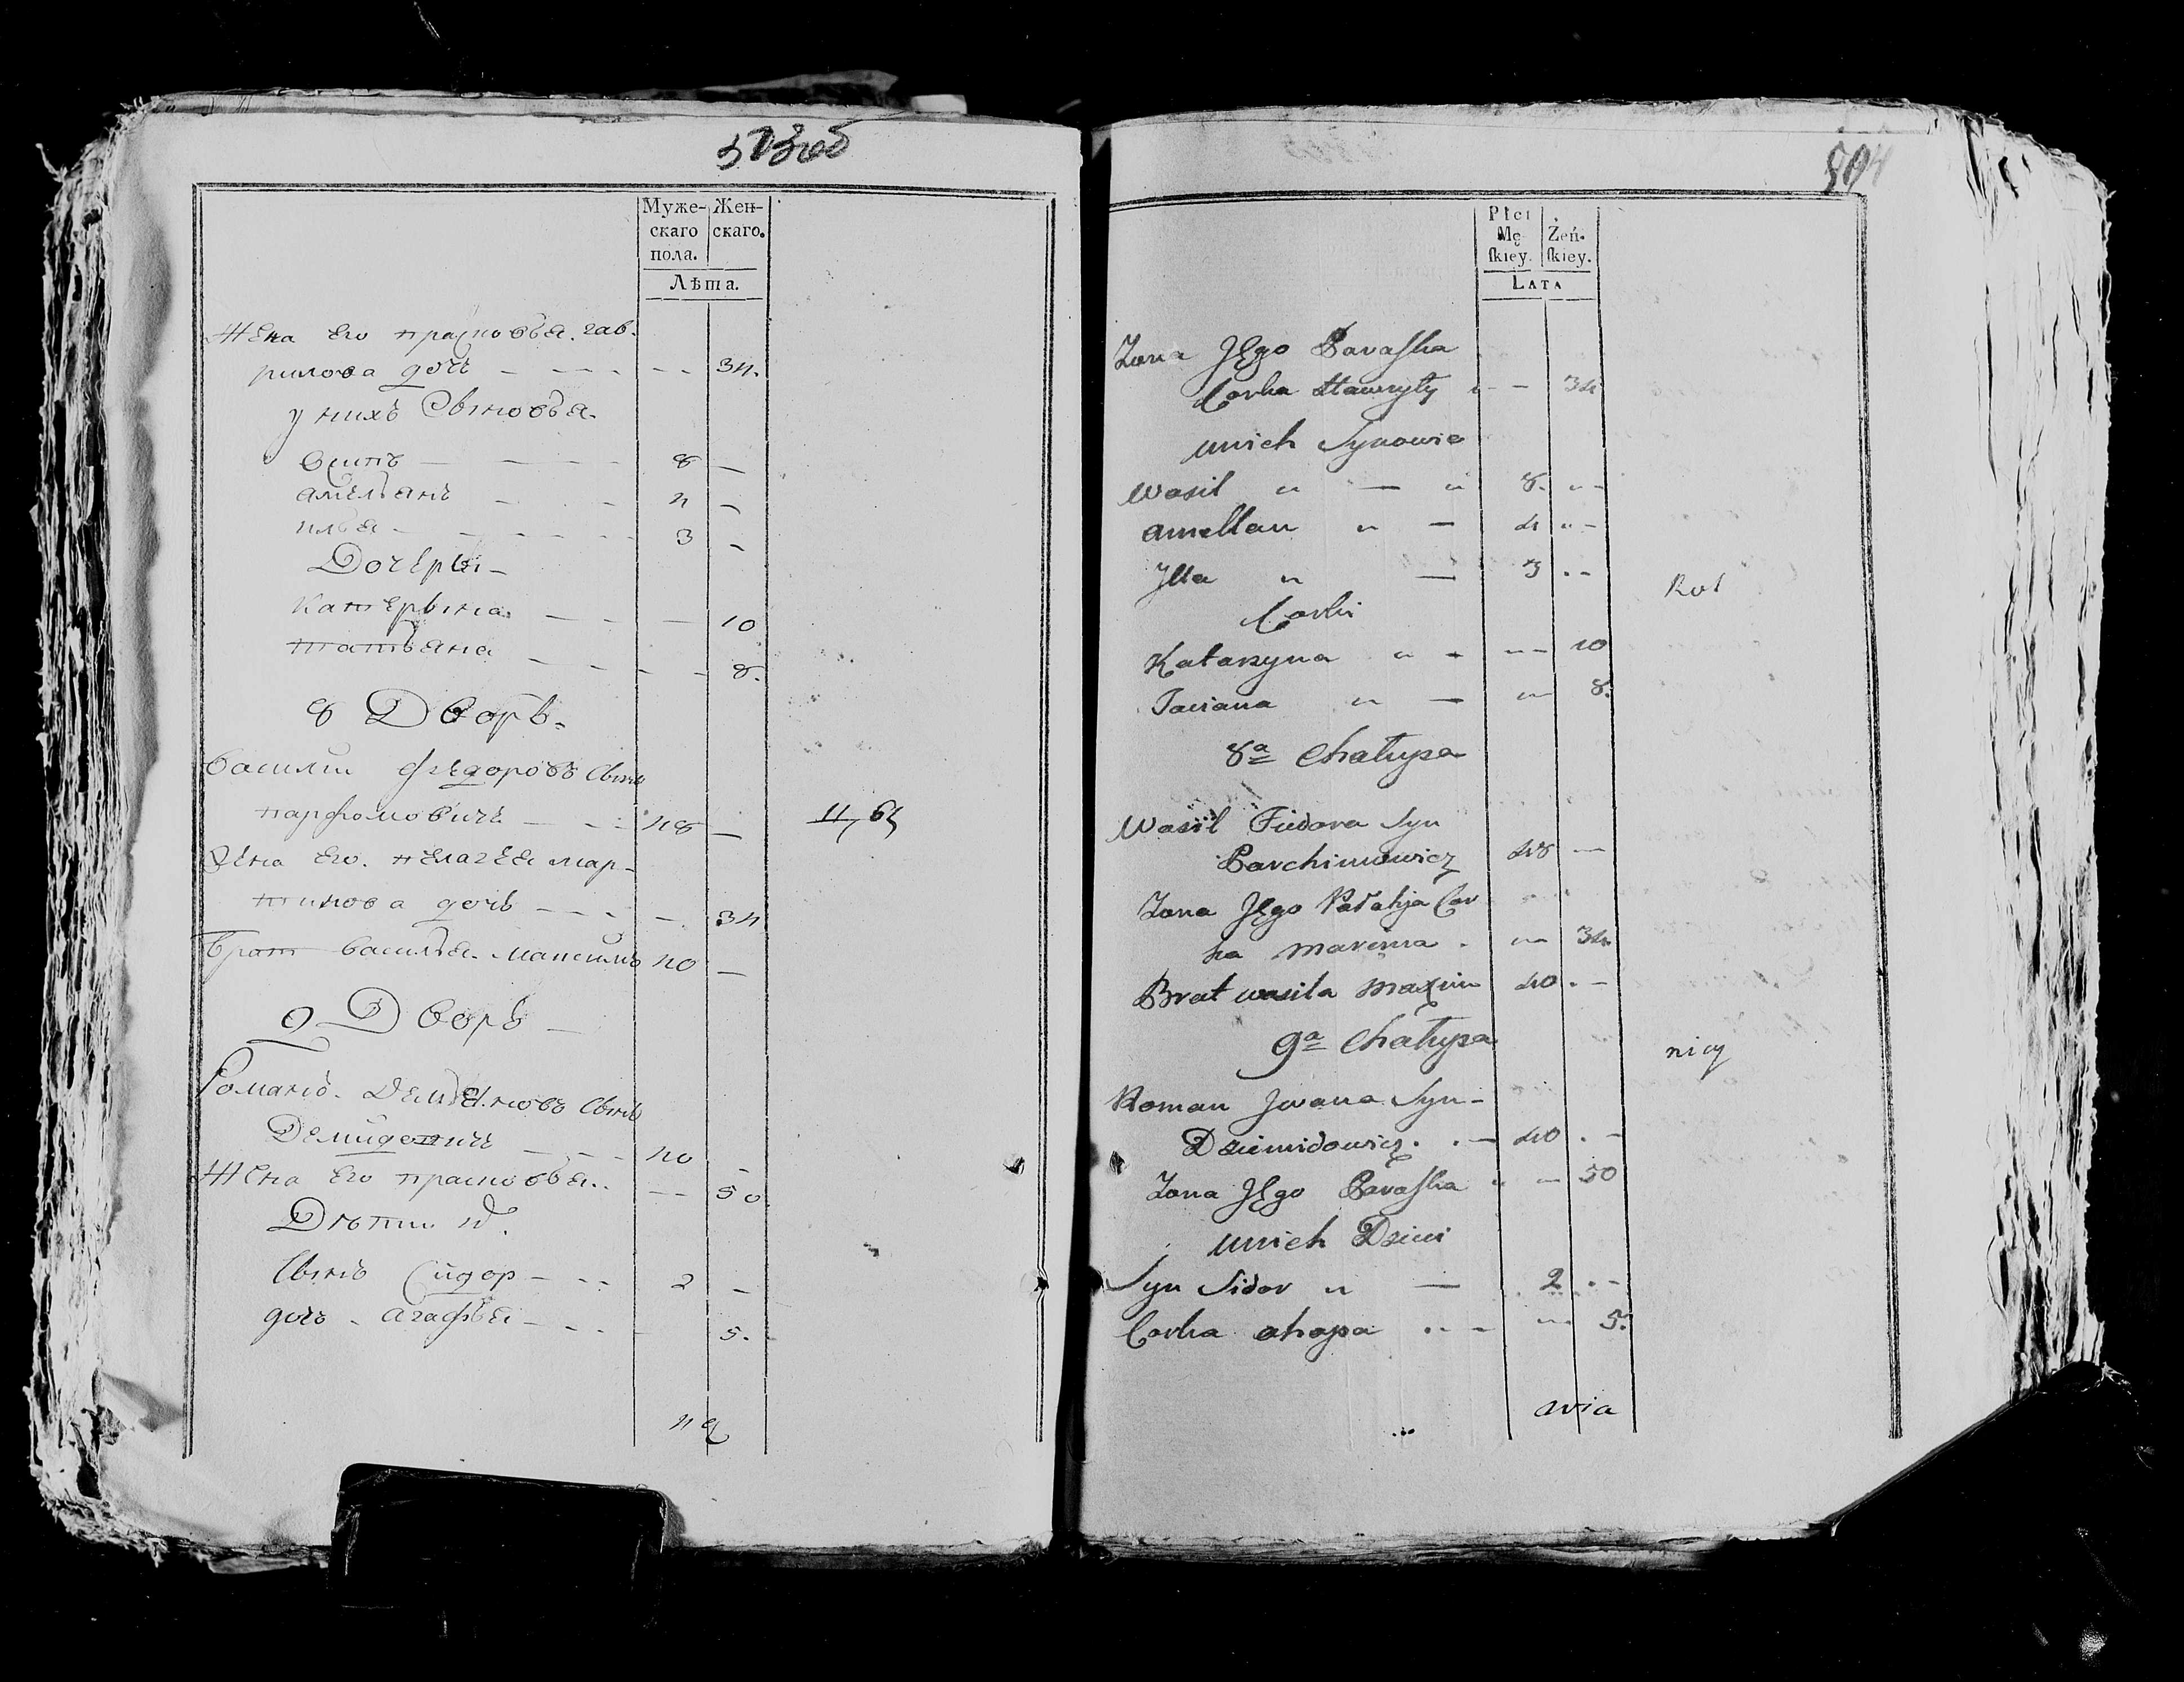 503 об
Муже-
скаго
пола.
Жен-
скаго.
Лѣта.
Жена его прасковья. гав-
рилова дочь - - - - - 34.
у нихъ Сыновья.
осипъ - - - 8 -
амельянъ - - 4 -
илья - - - - 3 -
Дочери -
Катерына - - - 10
татьяна - - - - 8.
8 Дворъ.
Василий федоровъ Сынъ
парфомовичъ - - 48 -
Жена его. пелагея мар-
тинова дочь - - - - 34
Братъ василья. максимъ 40 -
9 Дворъ -
Романъ. Демьяновъ Сынъ
Демидовичъ - - - 40 -
Жена его прасковья. - - 50.
Дѣти
Сынъ Сидор - - - 2 -
дочь - агафья - - - - 5.
504
Płci
Mę-
ſkiey.
Żeń-
ſkiey.
LATA
Zona Jego Paraſka
Corka Hawryły - - 34
unich Synowie
Wasil " — " 8. " -
amellan " — 4 " -
Jlla " — 3 . -
Corki
Katarzyna " - " - 10
Taciana " — " - 8.
8a Chałupa
Wasil Fiedora Syn
Parchimowicz 48 —
Zona Jego Pałahja Cor
ka marcina . " - 34.
Brat wasila maxim 40 . -
9a Chałupa
Roman Jwana Syn -
Dziemidowicz . . - 40 . -
Zona Jego Paraſka " — 50
unich Dzieci
Syn Sidor " — 2 . -
Corka ahapa . . - " - 5.